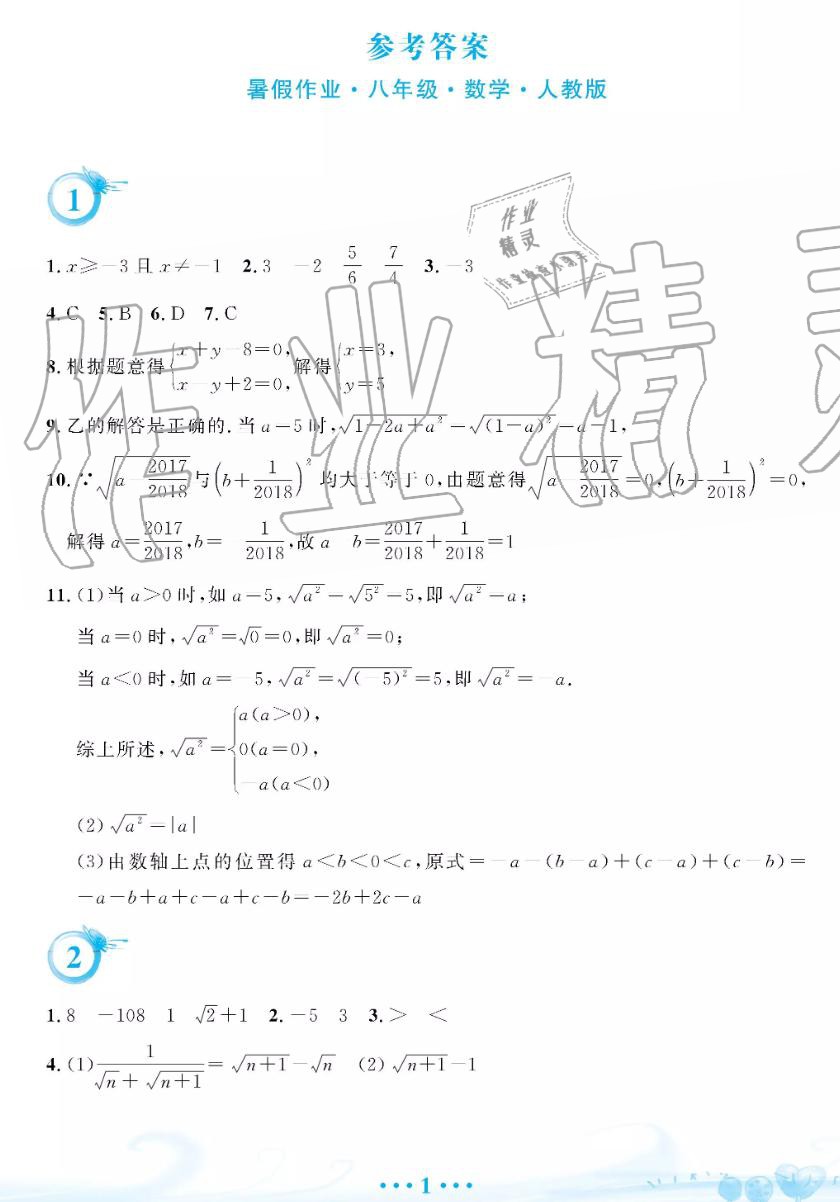 参考答案
暑假作业·八年级·数学·人教版
1
作业
精灵
1. x≥-3且x≠-1 2. 3 -2 5/6 7/4 3. -3
4. C 5. B 6. D 7. C
8. 根据题意得{x+y-8=0, x-y+2=0, 解得{x=3, y=5
9. 乙的解答是正确的. 当a=5时, √(1-2a+a²)=√((1-a)²)=a-1,
10. ∵√(a-2017/2018)与(b+1/2018)²均大于等于0,由题意得√(a-2017/2018)=0,(b+1/2018)²=0,
解得a=2017/2018,b=-1/2018,故a-b=2017/2018+1/2018=1
11. (1)当a>0时,如a=5,√a²=√5²=5,即√a²=a;
当a=0时,√a²=√0=0,即√a²=0;
当a<0时,如a=-5,√a²=√(-5)²=5,即√a²=-a.
综上所述,√a²={a(a>0), 0(a=0), -a(a<0)
(2)√a²=|a|
(3)由数轴上点的位置得a<b<0<c,原式=-a-(b-a)+(c-a)+(c-b)=
-a-b+a+c-a+c-b=-2b+2c-a
2
1. 8 -108 1 √2+1 2. -5 3 3. > <
4. (1) 1/(√n+√(n+1))=√(n+1)-√n (2)√(n+1)-1
···1···
作业精灵